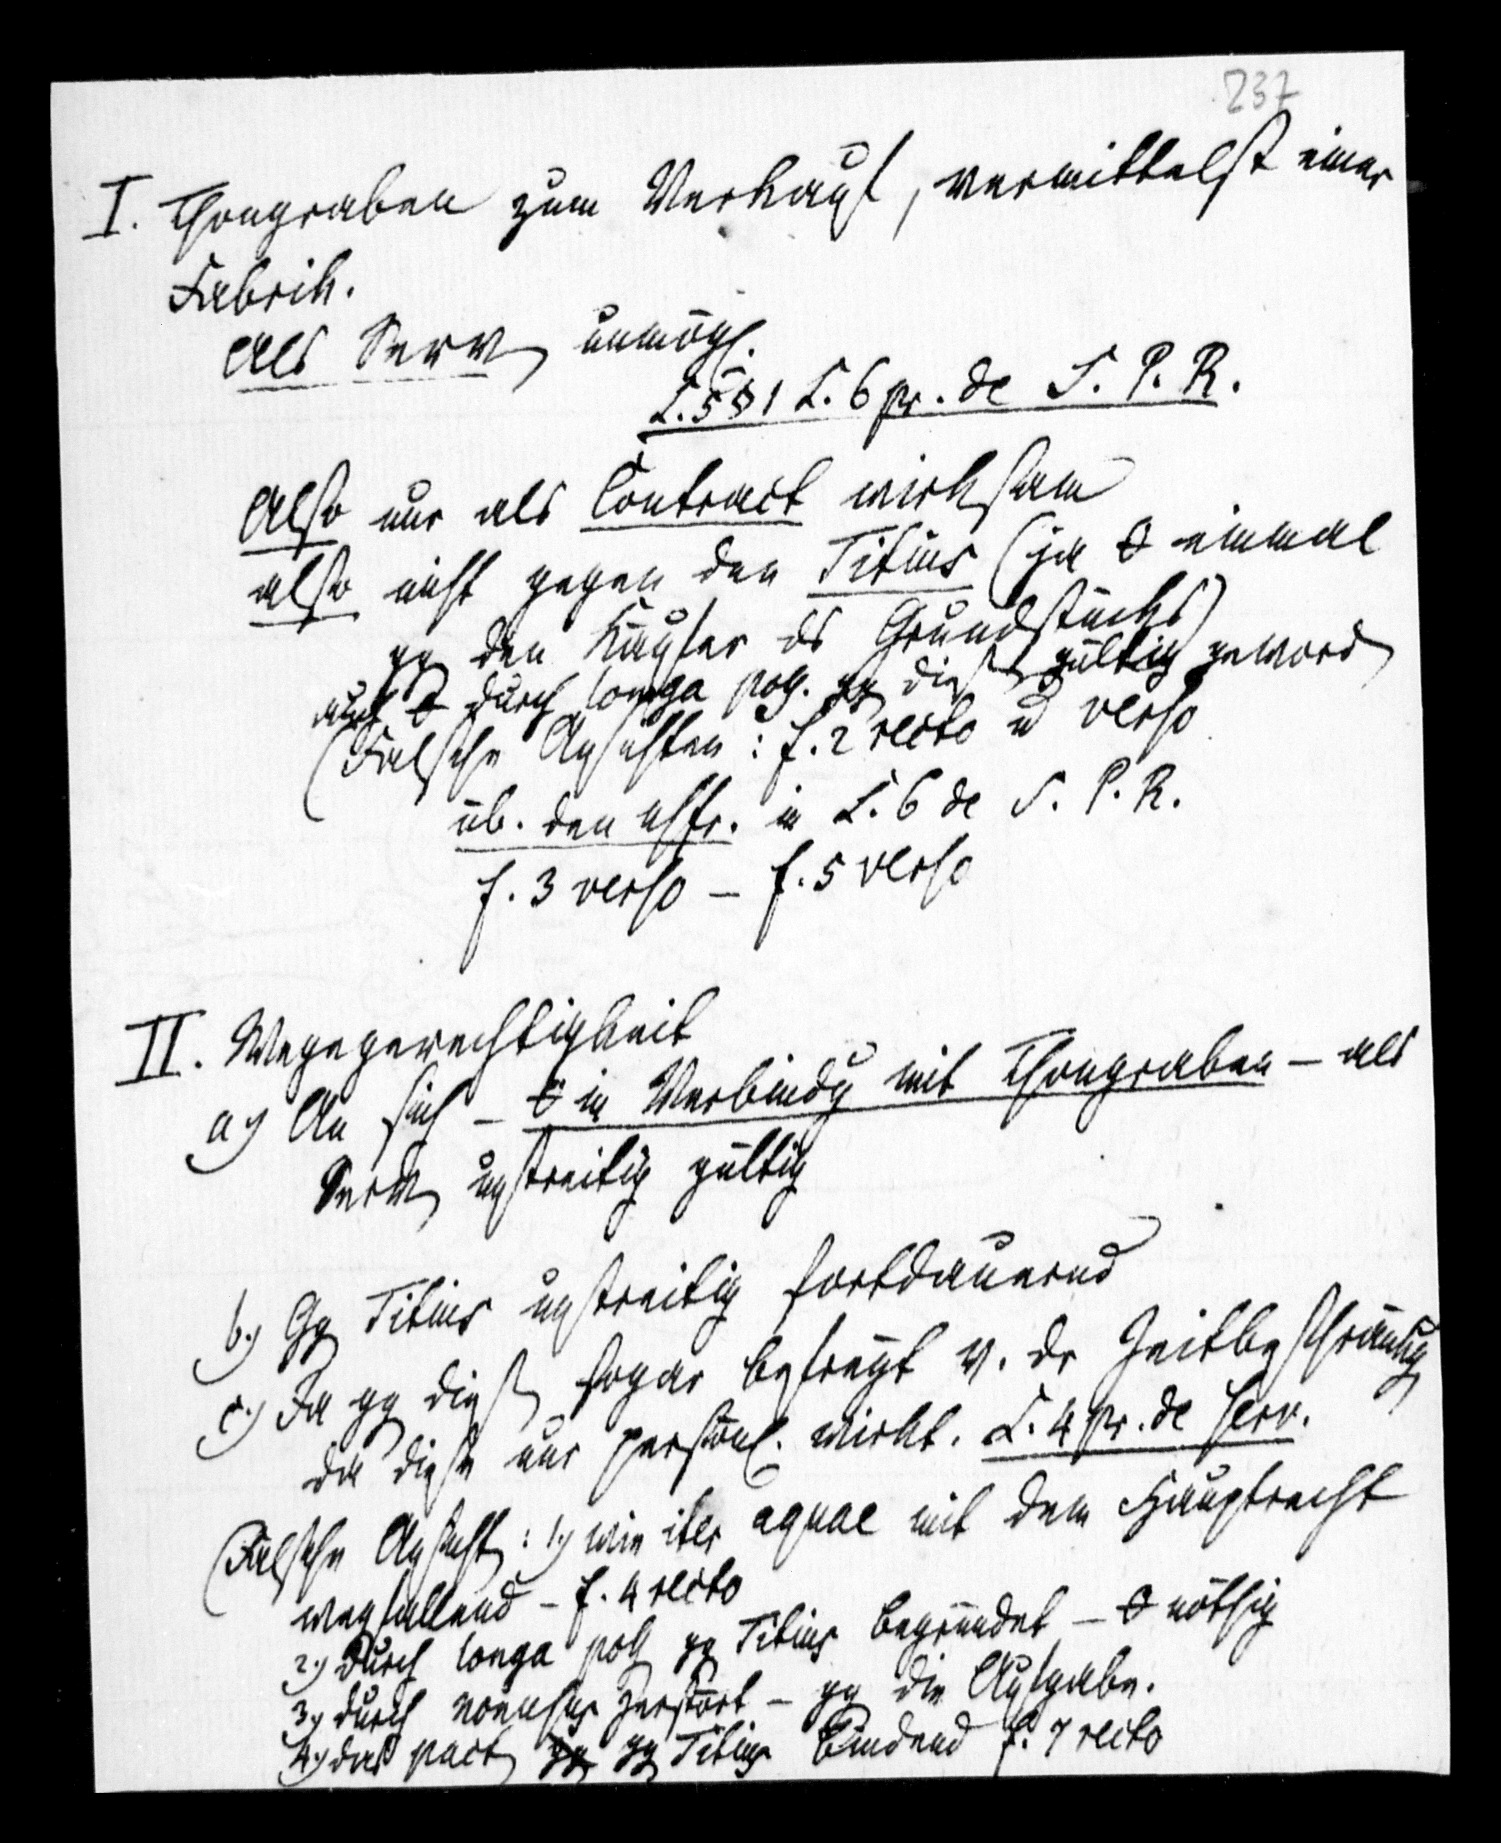 237
I. Thongraben zum Verkauf, vermittelst einer
Fabrik.
Als Serv unmögl.
L. 5 § 1 L. 6 pr. de S. P. R.
Also nur als Contract wirksam
also nicht gegen den Titius (ja einmal
gg den Käufer ds Grundstücks)
auch durch longa poss. gg dies gültig geword
(Falsche Ansichten: f. 2 recto u verso
üb. den in L. 6 de S. P. R.
f. 3 verso – f. 5 verso
II. Wegegerechtigkeit
a) An sich – in Verbindg mit Thongraben – als
Serv unstreitig gültig
b.) Gg Titius unstreitig fortdauernd
c.) Ja gg dies sogar befreyt v. dr Zeitbeschränkg
da diese nur persönl. wirkt. L. 4 pr. de serv.
(Falsche Ansicht: 1.) wie iter aquae mit dem Hauptrecht
wegfallend – f. 4 recto
2.) Durch longa poss gg Titius begründet – nöthig
3.) durch zerstört – gg die Aufgabe.
4.) das pact gg Titius bindend f. 7 recto